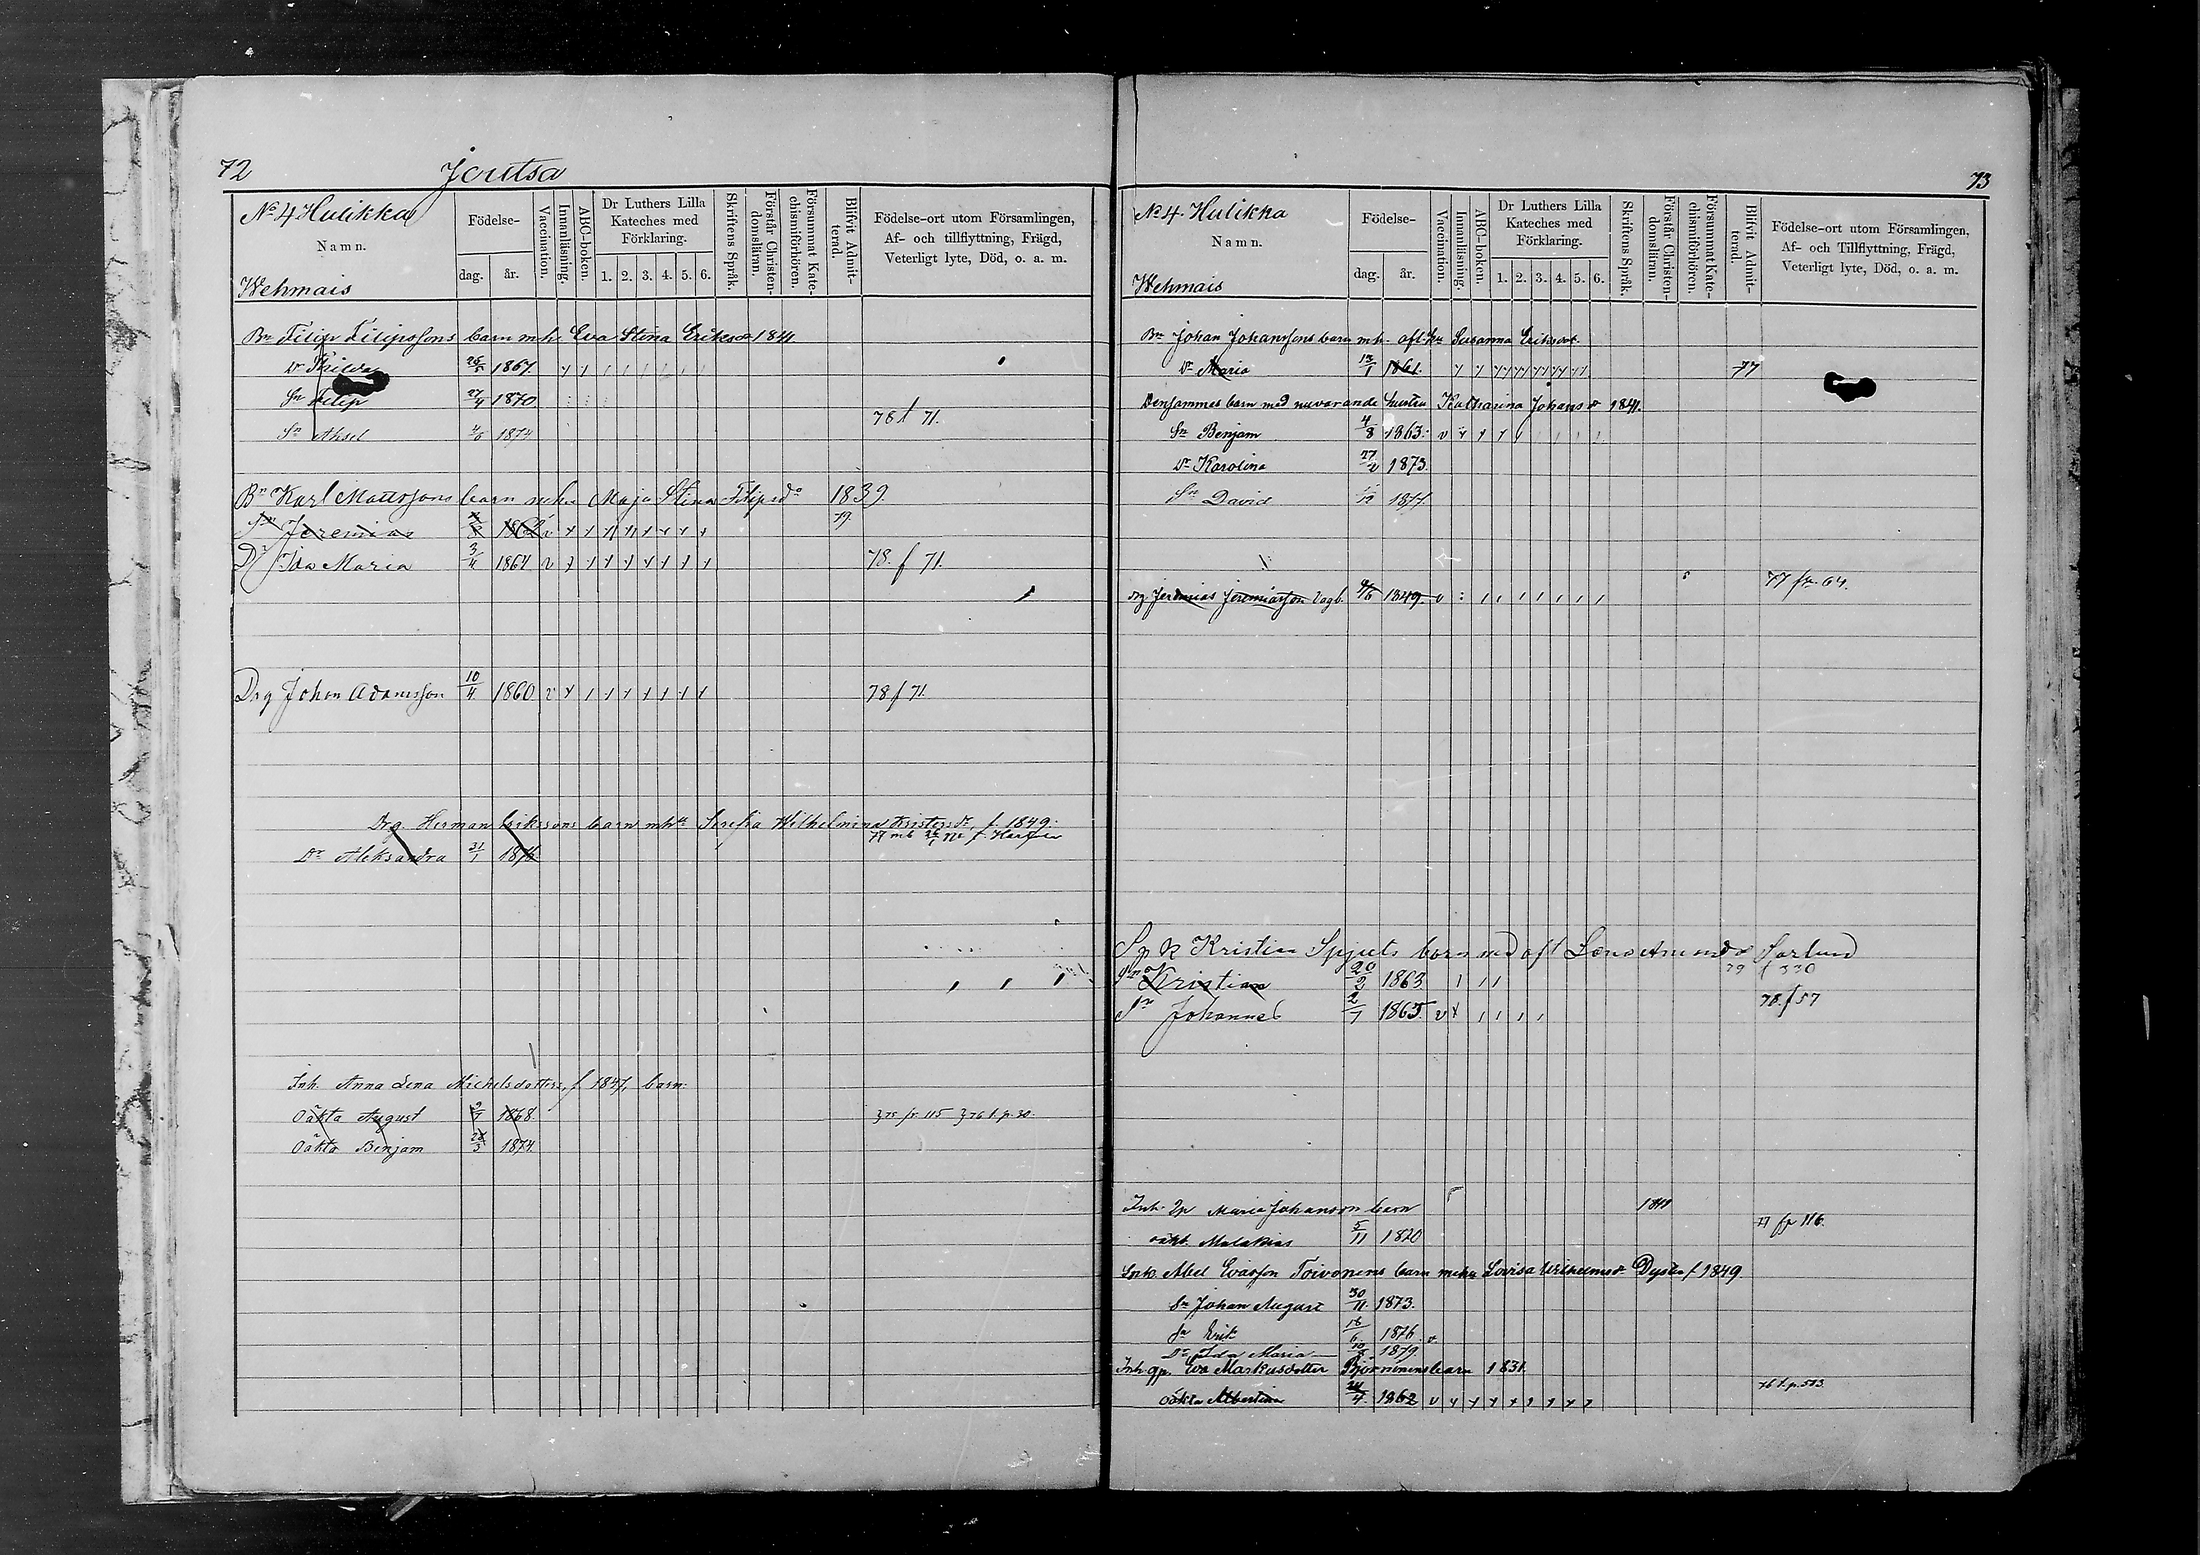 72 Joutsa
No 4 Hulikka
Namn.
Wehmais
Födelse-
dag. år.
Vaccination.
Innanläsning.
ABC-boken.
Dr Luthers Lilla Kateches med Förklaring.
1. 2. 3. 4. 5. 6.
Skriftens Språk.
Förstår Christendomsläran.
Försummat Katechismiförhören.
Blifvit Admitterad.
Födelse-ort utom Församlingen,
Af- och tillflyttning, Frägd,
Veterligt lyte, Död, o. a. m.
Bn Filip Filipssons barn mh Eva Stina Eriksdr 1841
Dr 1867
Sn Filip 27/4 1870
76 t 71.
Sn Aksel 1874
Bn Karl Mattssons barn m hu Maja Stina Filipsdr 1839.
Sn Jeremias 1862 v 79.
Dr Ida Maria 3/4 1864 v 78. f 71.
Drg Johan Adamsson 10/4 1860 v 78 f 71.
Drg Herman Erikssons barn m hu Serefia Wilhelmina Kristersdr, f. 1849.
Dr Aleksandra 31/1 1876
Inh. Anna Lena Michelsdotters, f 1847, barn:
Oäkta August 1868. 375 fr. 115 376 t. p. 30.
Oäkta Benjam 1874.
73
No 4. Hulikka
Namn.
Wehmais
Födelse-
dag. år.
Vaccination.
Innanläsning.
ABC-boken.
Dr Luthers Lilla Kateches med Förklaring.
1. 2. 3. 4. 5. 6.
Skriftens Språk.
Förstår Christendomsläran.
Försummat Katechismiförhören.
Blifvit Admitterad.
Födelse-ort utom Församlingen,
Af- och Tillflyttning, Frägd,
Veterligt lyte, Död, o. a. m.
Bn Johan Johanssons barn m. afl. hu Susanna Eriksdotr.
Dr Maria 1861. 77
Densammes barn med nuvarande hustru Katharina Johansdr 1841.
Sn Benjam 4/8 1863. v
Dr Karolina 27/2 1873.
Sn David 1877
77 fr. 64.
Drg Jeremias Jeremiasson Vagb. 1849. v
Sp k Kristian Spjuts barn med afl Lena Amundsdr Sorlund
Sn Kristian 20/2 1863 79 f 330
Sn Johannes 2/7 1865. v 78. f 57
Inh. Maria Johansson barn
77 fr 116.
oäkt. Malakias 5/11 1870
Inh. Abel Evasson Toivonens barn m hu Lovisa Wilhelmsdr Dyster f. 1849.
Sn Johan August 30/11. 1873.
Sn Erik 16/6. 1876. v.
Dr Ida Maria 1879.
Inh. Eva Markusdotter Björninens barn 1831.
Oäkta Albertina 1862 v 76 t. p. 513.